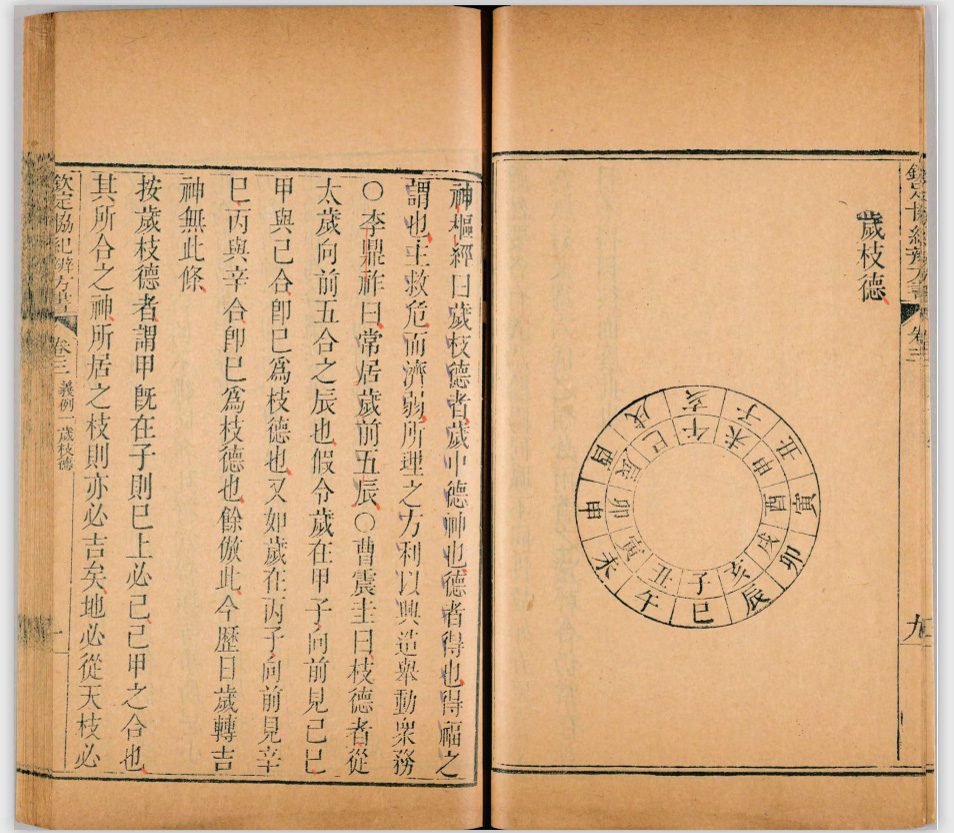 欽定協紀辨方書 卷三 九
歲枝德
子丑寅卯辰巳午未申酉戌亥
未申酉戌亥子丑寅卯辰巳午
神樞經曰歲枝德者歲中德神也德者得也得福之
謂也主救危而濟弱所理之方利以興造舉動衆務
○李鼎祚曰常居歲前五辰○曹震圭曰枝德者從
太歲向前五合之辰也假令歲在甲子向前見己巳
甲與己合卽巳爲枝德也又如歲在丙子向前見辛
巳丙與辛合卽巳爲枝德也餘倣此今歷日歲轉吉
神無此條
按歲枝德者謂甲旣在子則巳上必己己甲之合也
其所合之神所居之枝則亦必吉矣地必從天枝必
欽定協紀辨方書 卷三 義例一 歲枝德